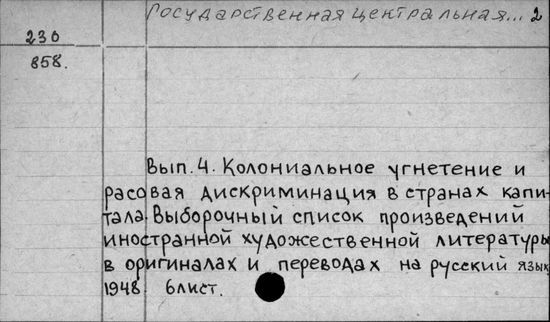 Государственная центральная... 2
230
858.
Вып. 4. Колониальное угнетение и
расовая дискриминация в странах капи-
тала. Выборочный список произведений
иностранной художественной литературы
в оригиналах и переводах на русский язык
1948 6 лист.